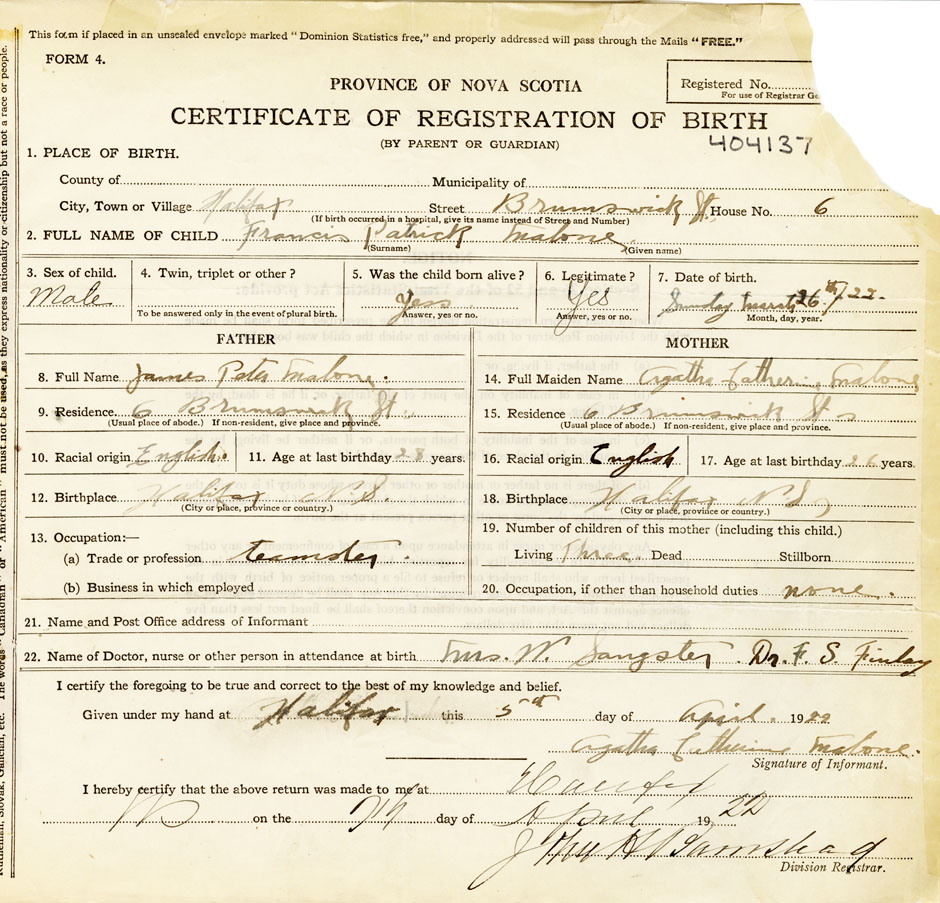 This form if placed in an unsealed envelope marked "Dominion Statistics free," and properly addressed will pass through the Mails "FREE."
FORM 4.
PROVINCE OF NOVA SCOTIA
Registered No.
For use of Registrar Ge
CERTIFICATE OF REGISTRATION OF BIRTH
(BY PARENT OR GUARDIAN)
404137
1. PLACE OF BIRTH.
County of Municipality of
City, Town or Village Halifax Street Brunswick St. House No. 6
(If birth occurred in a hospital, give its name instead of Street and Number)
2. FULL NAME OF CHILD Francis Patrick Malone
(Surname) (Given name)
3. Sex of child. Male
4. Twin, triplet or other?
To be answered only in the event of plural birth.
5. Was the child born alive? Yess
Answer, yes or no.
6. Legitimate? Yes
Answer, yes or no.
7. Date of birth.
Sunday March 26th/22.
Month, day, year.
FATHER
8. Full Name James Peter Malone.
9. Residence. 6 Brumswick St.
(Usual place of abode.) If non-resident, give place and province.
10. Racial origin English. 11. Age at last birthday 28 years.
12. Birthplace Halifax N.S.
(City or place, province or country.)
13. Occupation:—
(a) Trade or profession teamster
(b) Business in which employed
MOTHER
14. Full Maiden Name Agatha Catherine Malone
15. Residence 6 Brunswick St
(Usual place of abode.) If non-resident, give place and province.
16. Racial origin English 17. Age at last birthday 26 years.
18. Birthplace Halifax N.S,
(City or place, province or country.)
19. Number of children of this mother (including this child.)
Living Three Dead Stillborn
20. Occupation, if other than household duties none.
21. Name and Post Office address of Informant
22. Name of Doctor, nurse or other person in attendance at birth Mrs. W. Sangster. Dr. F. S. Finlay
I certify the foregoing to be true and correct to the best of my knowledge and belief.
Given under my hand at Halifax this 5th day of April. 1922
Agatha Catherine Malone.
Signature of Informant.
I hereby certify that the above return was made to me at Halifax
on the 7th day of April 1922
Division Registrar.
must not be used, as they express nationality or citizenship but not a race or people.
Ruthenian, Slovak, Galician, etc. The words "Canadian" or "American"